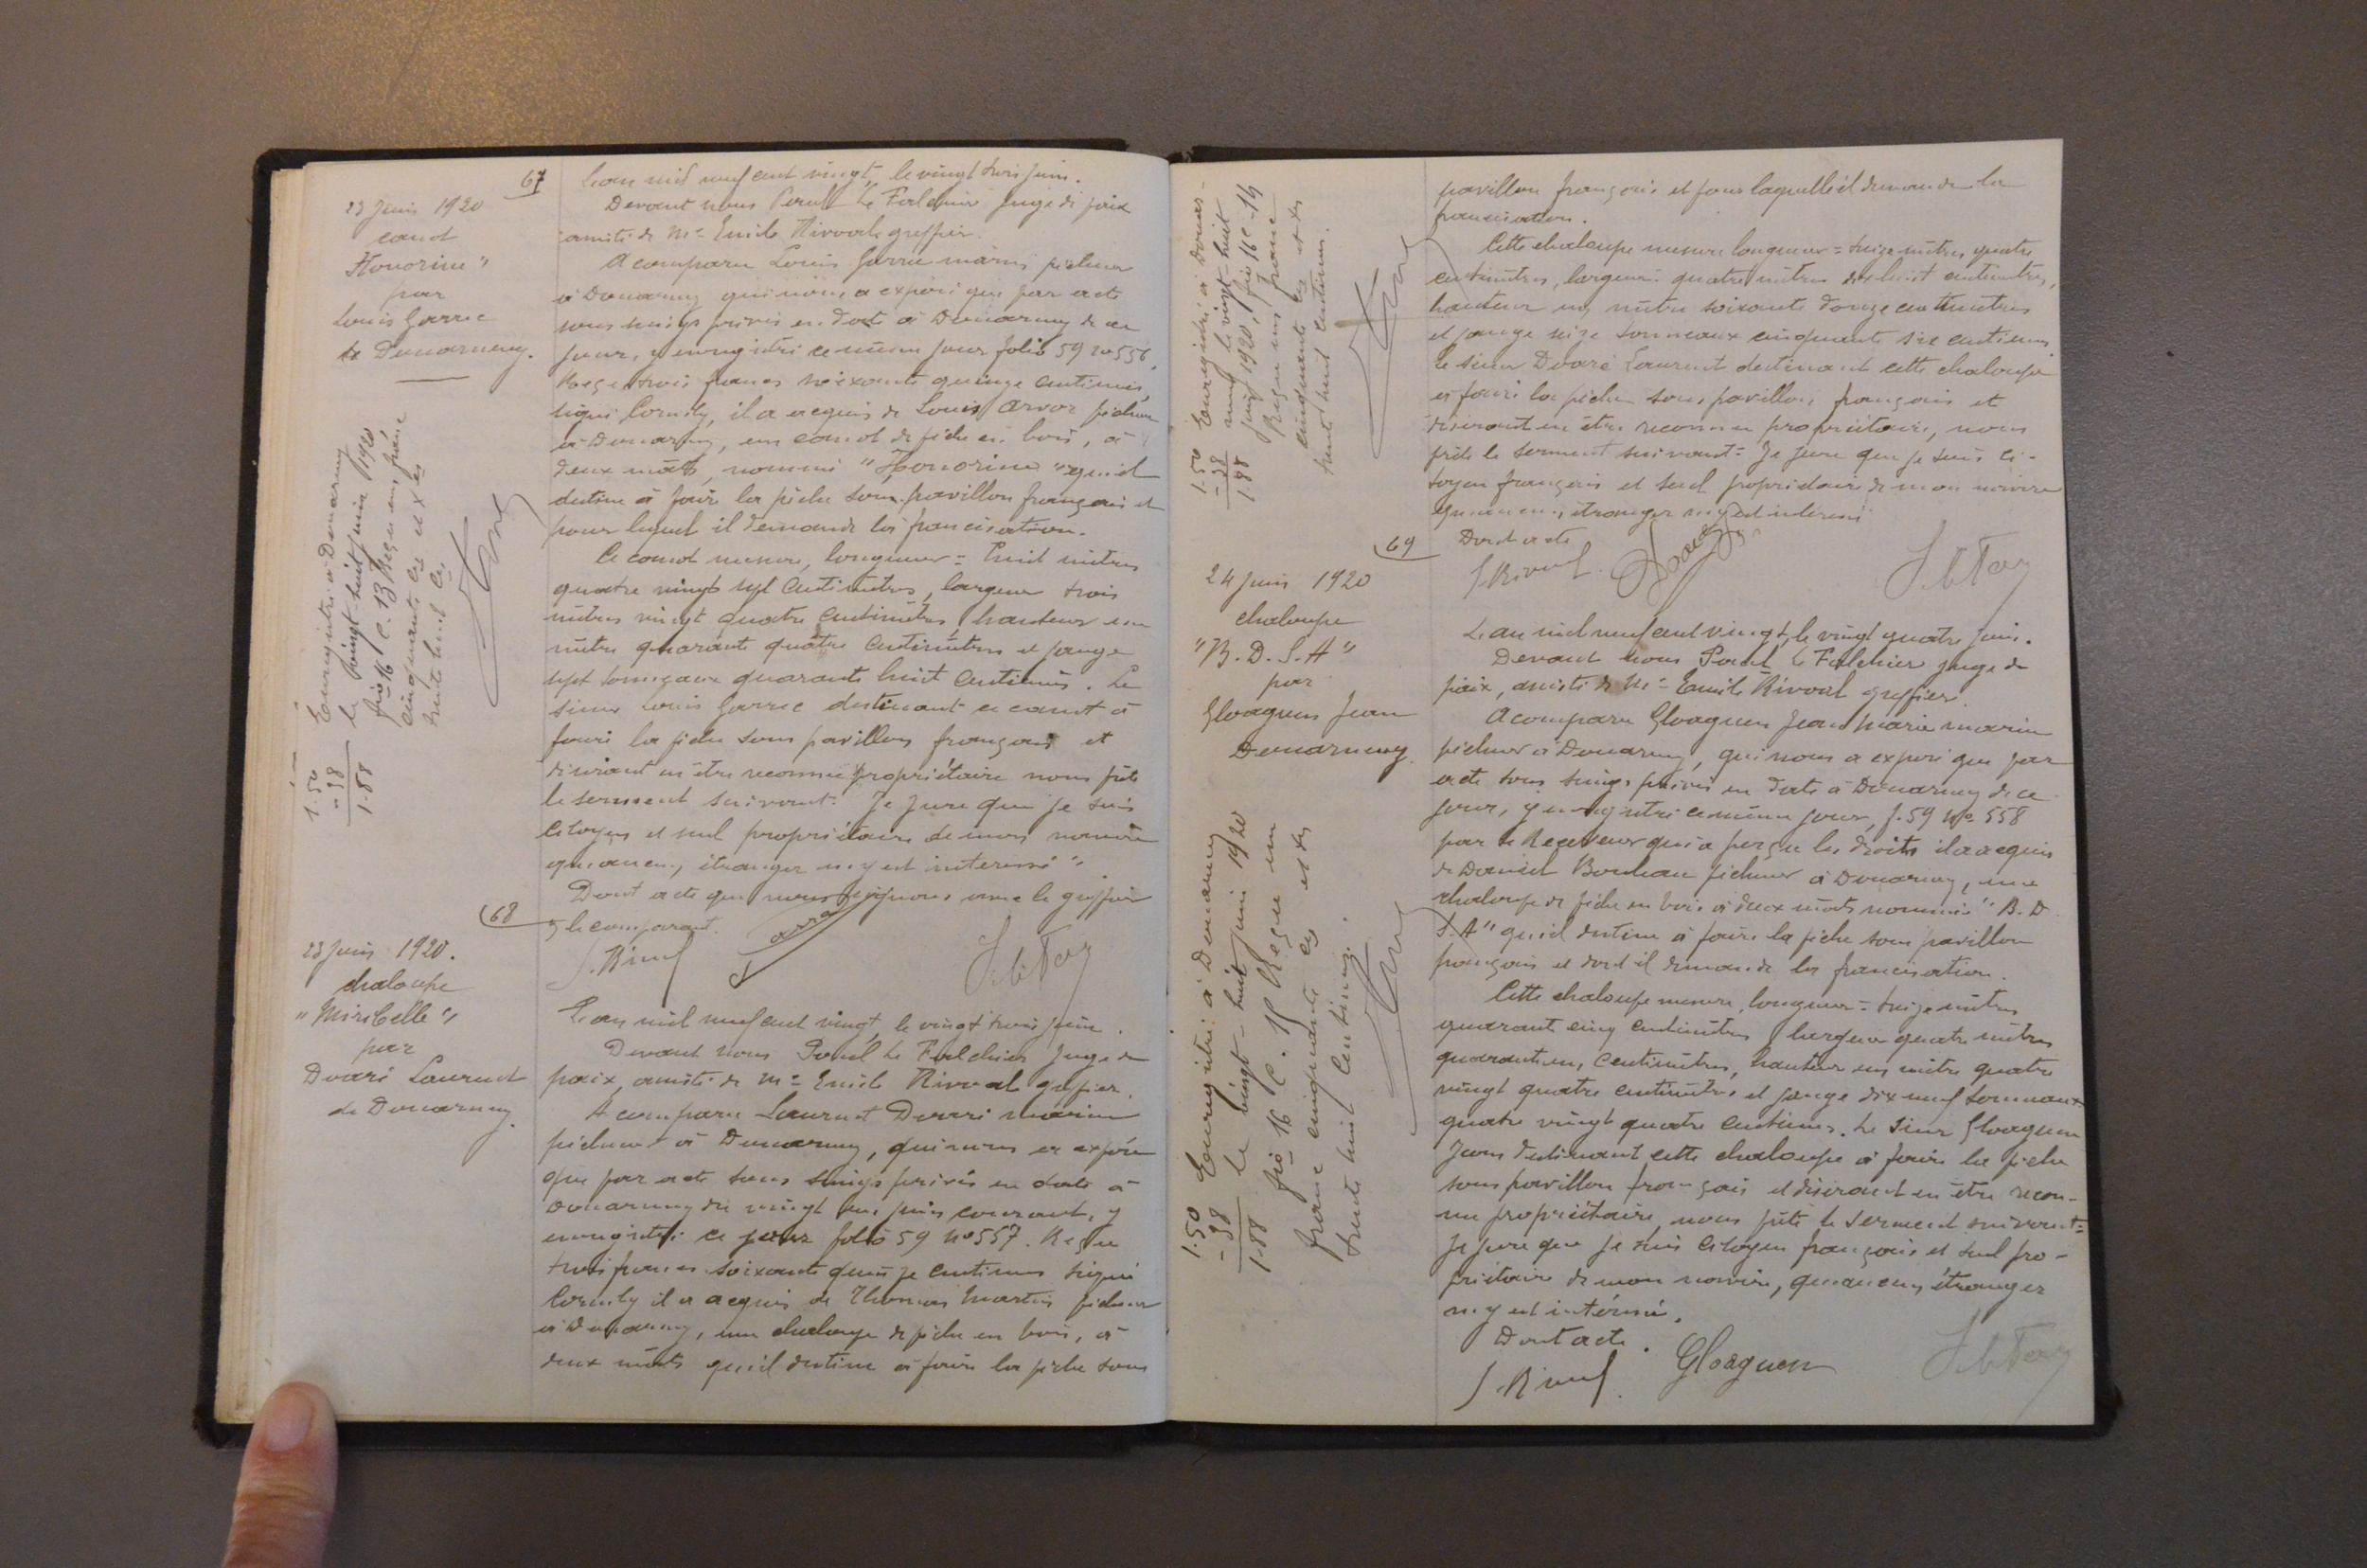 67
23 Juin 1920
canot
Honorine"
par
Louis Garrec
de Douarnenez.
L'an mil neuf cent vingt, le vingt trois juin.
Devant nous Paul Le Falchier Juge de paix
assisté de Me Emile Rivoal greffier.
A comparu Louis Garrec marin pêcheur
à Douarnenez qui nous a exposé que par acte
sous seings privés en date à Douarnenez de ce
jour, y enregistré ce même jour folio 59 no 556,
Reçu trois francs soixante quinze centimes,
signé Cornily, il a acquis de Louis Arvor pêcheur
à Douarnenez, un canot de pêche en bois, à
deux mâts, nommé "Honorine" qu'il
destine à faire la pêche sous pavillon français et
pour lequel il demande la francisation.
Ce canot mesure, longueur = huit mètres
quatre vingt sept centimètres, largeur trois
mètres vingt quatre centimètres, hauteur un
mètre quarante quatre centimètres et jauge
sept tonneaux quarante huit centièmes. Le
sieur Louis Garrec destinant ce canot à
faire la pêche sous pavillon français et
désirant en être reconnu propriétaire nous prête
le serment suivant: Je jure que je suis
citoyen et seul propriétaire de mon navire
qu'aucun étranger n'y est intéressé".
Dont acte que nous signons avec le greffier
& le comparant.
Enregistré à Douarnenez
le vingt-huit juin 1920
fio 16 C. 13 Reçu un franc
cinquante ces et x es
trente huit ces
1.50
-38
1.88
68
23 Juin 1920.
chaloupe
"Mirabelle"
par
Doaré Laurent
de Douarnenez.
L'an mil neuf cent vingt, le vingt trois juin.
Devant nous Paul Le Falchier Juge de
paix, assisté de Me Emile Rivoal greffier.
A comparu Laurent Doaré marin
pêcheur à Douarnenez, qui nous a exposé
que par acte sous seings privés en date à
Douarnenez du vingt un juin courant, y
enregistré ce jour folio 59 no 557. Reçu
trois francs soixante quinze centimes signé
Cornily il a acquis de Thomas Martin pêcheur
à Douarnenez, une chaloupe de pêche en bois, à
deux mâts qu'il destine à faire la pêche sous
pavillon français et pour laquelle il demande la
francisation.
Cette chaloupe mesure longueur = treize mètres quatre
centimètres, largeur: quatre mètres dix huit centimètres,
hauteur un mètre soixante douze centimètres
et jauge seize tonneaux cinquante six centièmes.
Le sieur Doaré Laurent destinant cette chaloupe
à faire la pêche sous pavillon français et
désirant en être reconnu propriétaire, nous
prête le serment suivant: Je jure que je suis ci-
toyen français et seul propriétaire de mon navire
qu'aucun étranger n'y est intéressé
Dont acte
Enregistré à Douar-
nenez le vingt-huit
juin 1920, fio 16 C. 14
Reçu un franc
cinquante ces et xes
trente huit centimes.
1.50
-38
1.88
69
24 Juin 1920
chaloupe
"B. D. S. A"
par
Gloaguen Jean
Douarnenez.
L'an mil neuf cent vingt, le vingt quatre juin.
Devant nous Paul Le Falchier Juge de
paix, assisté de Me Emile Rivoal greffier.
A comparu Gloaguen Jean Marie marin
pêcheur à Douarnenez, qui nous a exposé que par
acte sous seings privés en date à Douarnenez de ce
jour, y enregistré ce même jour, f. 59 No 558
par le Receveur qui a perçu les droits il a acquis
de Daniel Bonleau pêcheur à Douarnenez, une
chaloupe de pêche en bois à deux mâts nommée "B. D.
S. A" qu'il destine à faire la pêche sous pavillon
français et dont il demande la francisation.
Cette chaloupe mesure, longueur = treize mètres
quarante cinq centimètres, largeur quatre mètres
quarante un centimètres, hauteur un mètre quatre
vingt quatre centimètres et jauge dix neuf tonneaux
quatre vingt quatre centièmes. Le Sieur Gloaguen
Jean destinant cette chaloupe à faire la pêche
sous pavillon français et désirant en être recon-
nu propriétaire, nous prête le serment suivant =
Je jure que je suis citoyen français et seul pro-
priétaire de mon navire, qu'aucun étranger
n'y est intéressé.
Dont acte.
Gloaguen
Enregistré à Douarnenez
le vingt-huit juin 1920
fio 16 C. 15 Reçu un
franc cinquante ces et xes
trente huit centimes.
1.50
-38
1.88